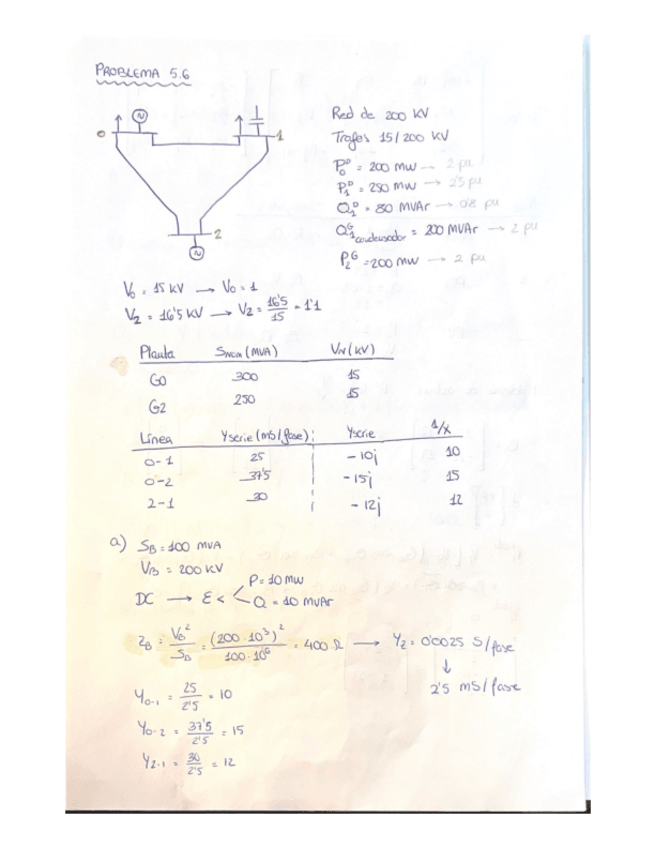 PROBLEMA 5.6
0
1
2
Red de 200 KV
Trafos 15/200 KV
P₀ᴰ = 200 MW → 2 pu
P₁ᴰ = 250 MW → 2'5 pu
Q₁ᴰ = 80 MVAr → 0'8 pu
Q₁ᴳ condensador = 200 MVAr → 2 pu
P₂ᴳ = 200 MW → 2 pu
V₀ = 15 KV → V₀ = 1
V₂ = 16'5 KV → V₂ = 16'5/15 = 1'1
Planta SNOM (MVA) VN (KV)
G0 300 15
G2 250 15
Línea Yserie (mS/fase) Yserie 1/X
0-1 25 -10j 10
0-2 37'5 -15j 15
2-1 30 -12j 12
a) SB = 100 MVA
VB = 200 KV
DC → ε < P = 10 MW
Q = 10 MVAr
ZB = VB²/SB = (200·10³)²/100·10⁶ = 400 Ω → Yz = 0'0025 S/fase
↓
2'5 mS/fase
Y0-1 = 25/2'5 = 10
Y0-2 = 37'5/2'5 = 15
Y2-1 = 30/2'5 = 12